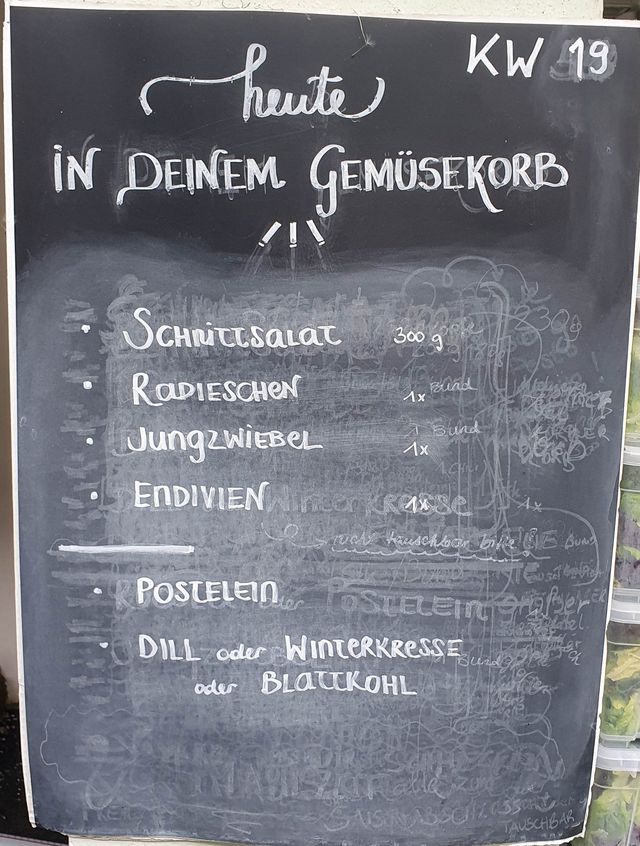 KW 19
heute
IN DEINEM GEMÜSEKORB
SCHNITTSALAT 300 g
RADIESCHEN 1x Bund
JUNGZWIEBEL 1x Bund
ENDIVIEN 1x
POSTELEIN
DILL oder WINTERKRESSE
oder BLATTKOHL